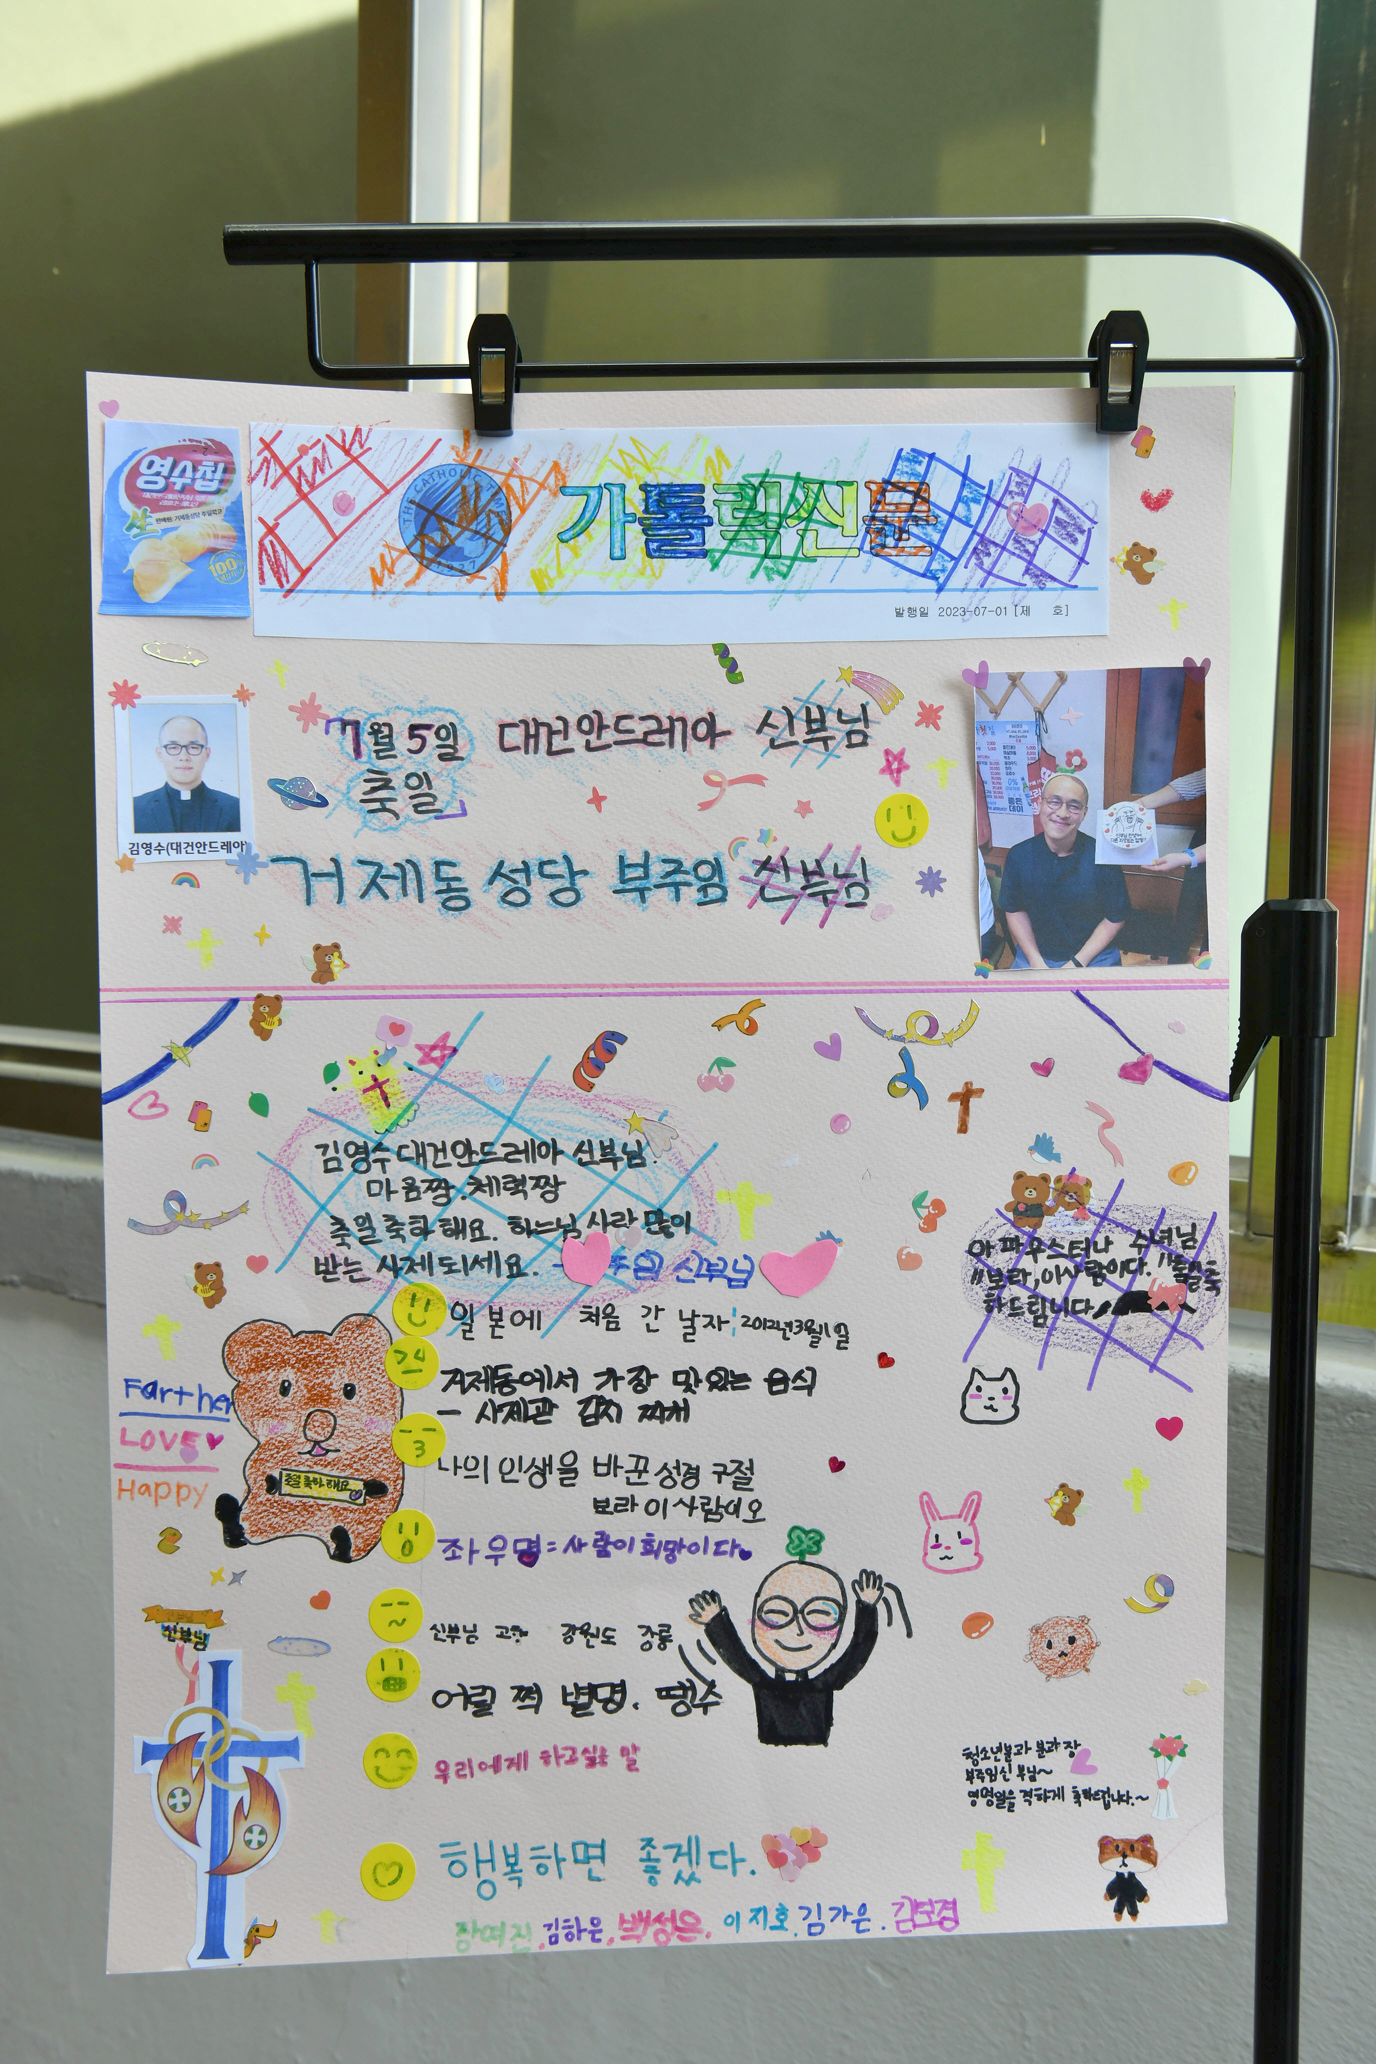 영수칩
生
100
THE CATHOLIC TIMES
1927
가톨릭신문
발행일 2023-07-01 [제 호]
7월 5일 대건안드레아 신부님
축일
김영수(대건안드레아)
거제동 성당 부주임 신부님
김영수 대건안드레아 신부님.
마음짱. 체력짱
축일 축하 해요. 하느님 사랑 많이
받는 사제 되세요. 신부님
아파우스티나 수녀님
"보라, 이사람이다."
하드립니다
일본에 처음 간 날자: 2012년 3월 1일
거제동에서 가장 맛있는 음식
- 사제관 김치 찌개
Farther
LOVE
Happy
축일 축하 해요
나의 인생을 바꾼 성경 구절
보라 이 사람이오
좌우명 = 사람이 희망이다
신부님
신부님 고향 강원도 강릉
어릴 쩍 별명. 땡수
우리에게 하고싶은 말
청소년분과 분과장
부주임신부님~
영명일을 격하게 축하드립니다.~
행복하면 좋겠다.
장여진, 김하은, 백성은, 이지호, 김가은, 김보경